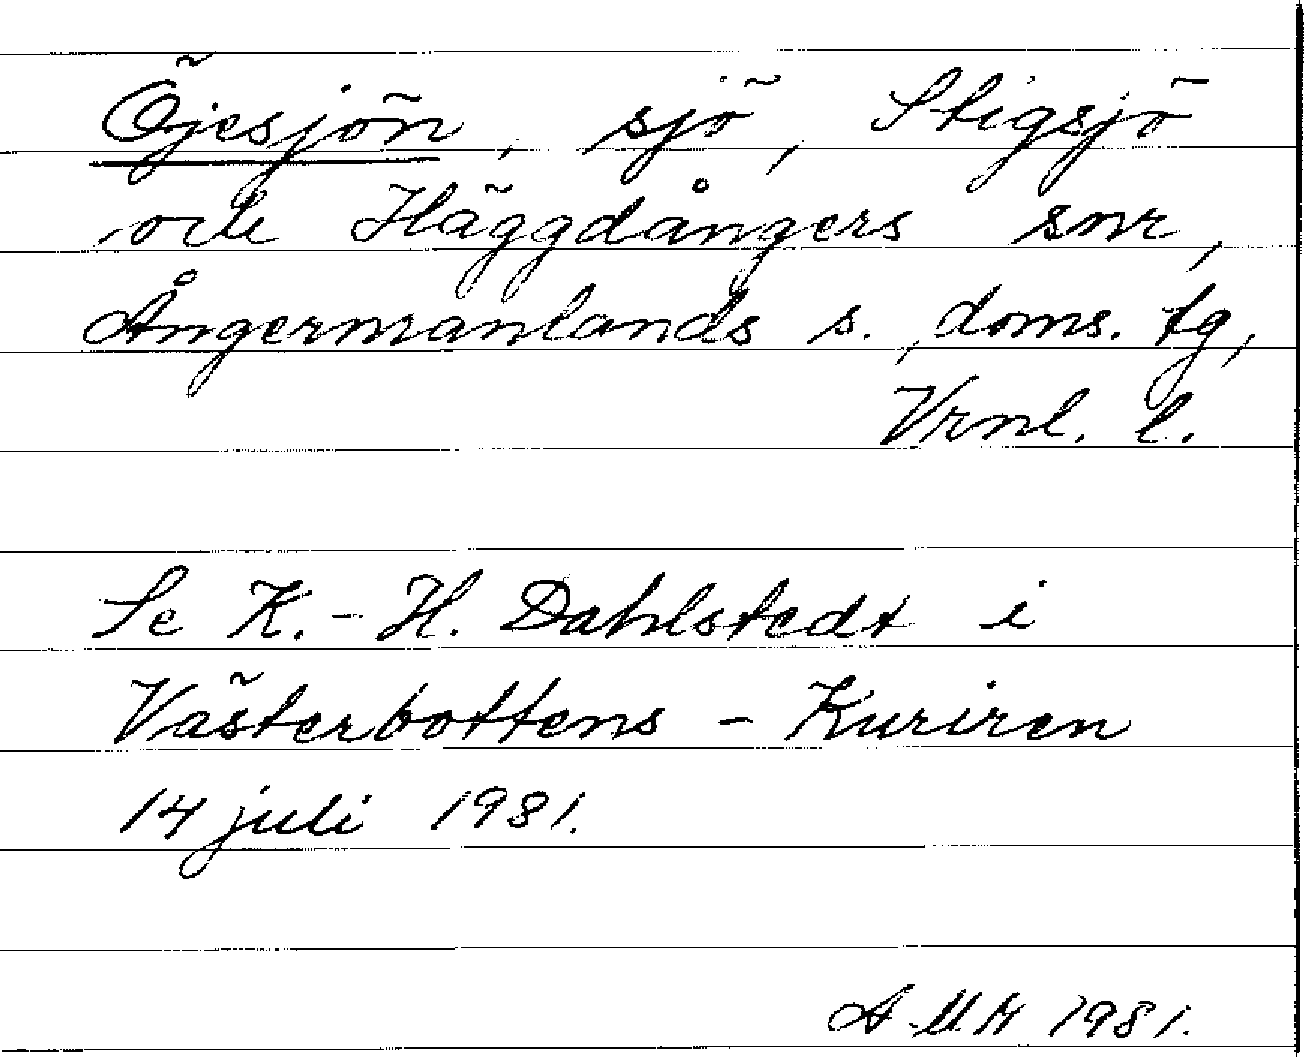 Öjesjön, sjö, Stigsjö
och Häggdångers snr,
Ångermanlands s. doms. tg,
Vrnl. l.
Se K.-H. Dahlstedt i
Västerbottens-Kuriren
14 juli 1981.
1981.